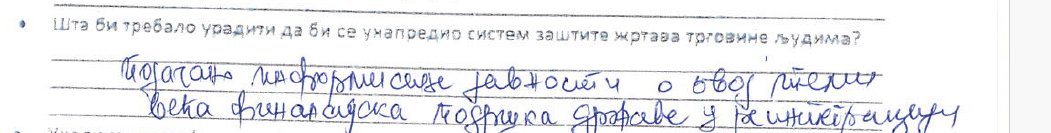 • Шта би требало урадити да би се унапредио систем заштите жртава трговине људима?
Појачано информисање јавности о овој теми
Већа финансијска подршка државе у реинтеграцији